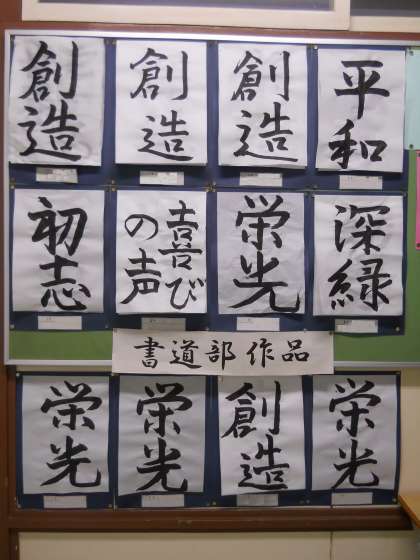 創造
創造
創造
平和
初志
喜びの声
栄光
深緑
書道部作品
栄光
栄光
創造
栄光